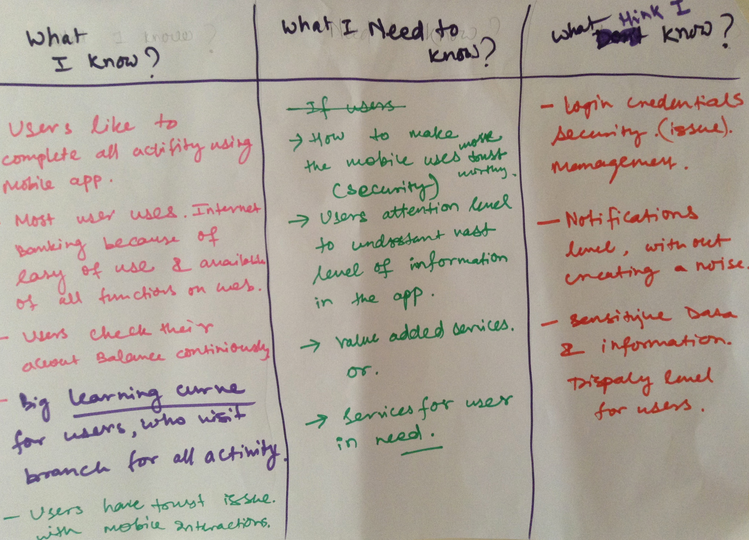 What
I know?
Users like to
complete all actifity using
mobile app.
Most user uses. Internet
Banking because of
easy of use & available
of all functions on web.
- Users check their
accout Balance continiously
- Big learning curve
for users, who visit
branch for all activity.
- Users have toust issue.
with mobile interactions.
What I Need to
know?
If users
→ How to make
the mobile uses more
(security) toust
worthy.
→ Users attention level
to undrstant vast
level of information
in the app.
→ Value added sevices.
or.
→ Services for user
in need.
What think I
know?
- Login credentials
security. (issue).
management.
- Notifications
level, without
creating a noise.
- Sensitive Data
& information.
Dispaly level
for users.